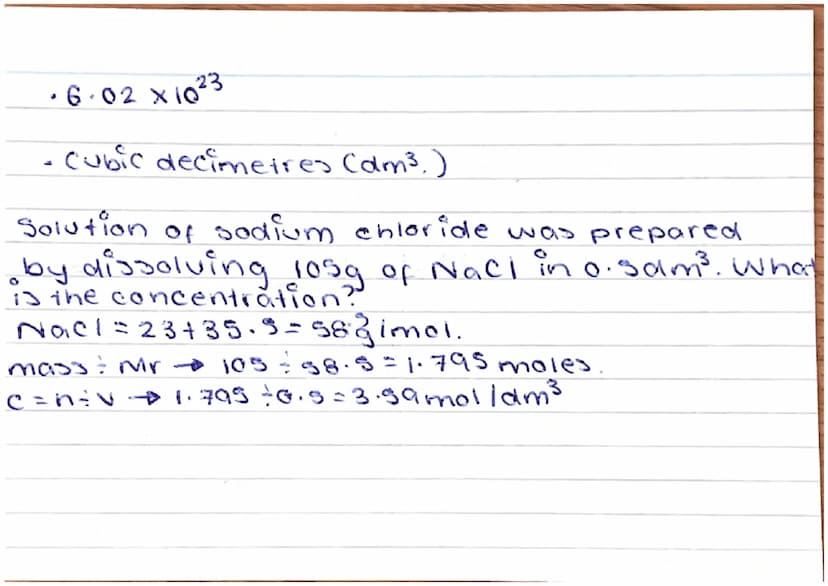 • 6.02 × 10²³
- Cubic decimetres (dm³.)
Solution of sodium chloride was prepared
by dissolving 105g of NaCl in 0.5dm³. What
is the concentration?
NaCl = 23+35.5 = 58. g/mol.
mass ÷ Mr → 105 ÷ 58.5 = 1.795 moles.
c = n ÷ v → 1.795 ÷ 0.5 = 3.59 mol/dm³